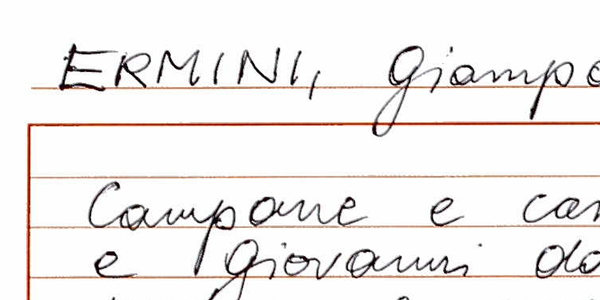 ERMINI, Giampo
Campane e can
e Giovanni da